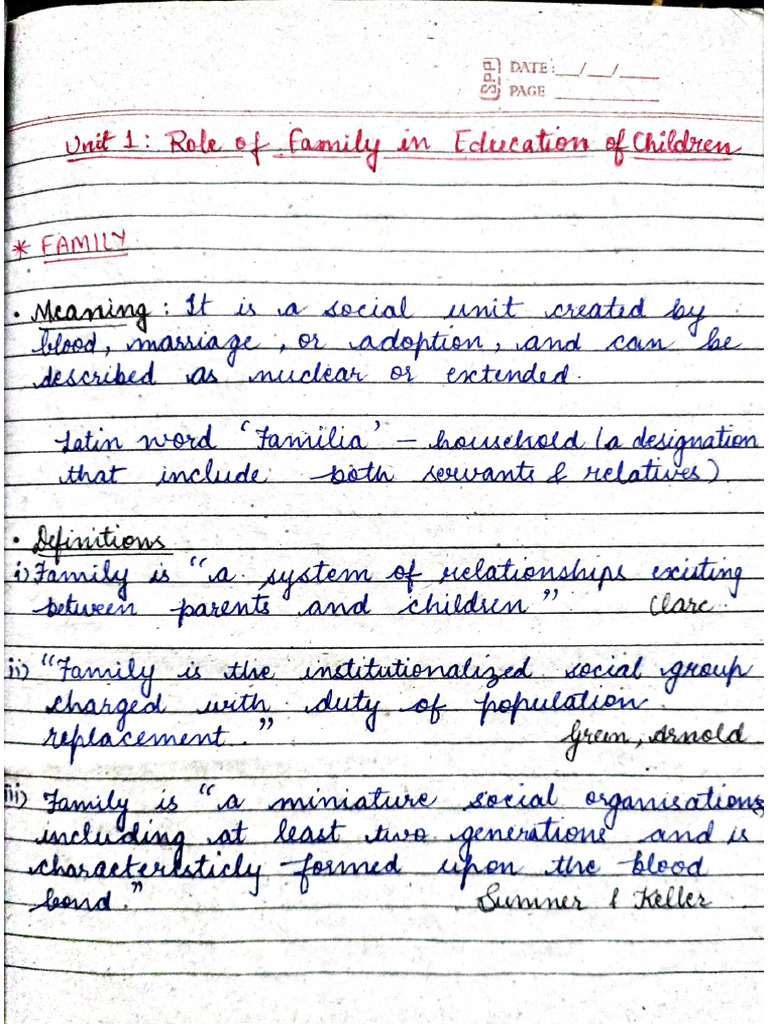 SPP DATE: __/__/____
PAGE ________
Unit 1: Role of Family in Education of Children
* FAMILY
• Meaning: It is a social unit created by
blood, marriage, or adoption, and can be
described as nuclear or extended.
Latin word ‘Familia’ – household (a designation
that include both servants & relatives)
• Definitions
i) Family is “a system of relationships existing
between parents and children” Clare
ii) “Family is the institutionalized social group
charged with duty of population
replacement.” Green, Arnold
iii) Family is “a miniature social organisations
including at least two generations and is
characteristicly formed upon the blood
bond.” Sumner & Keller